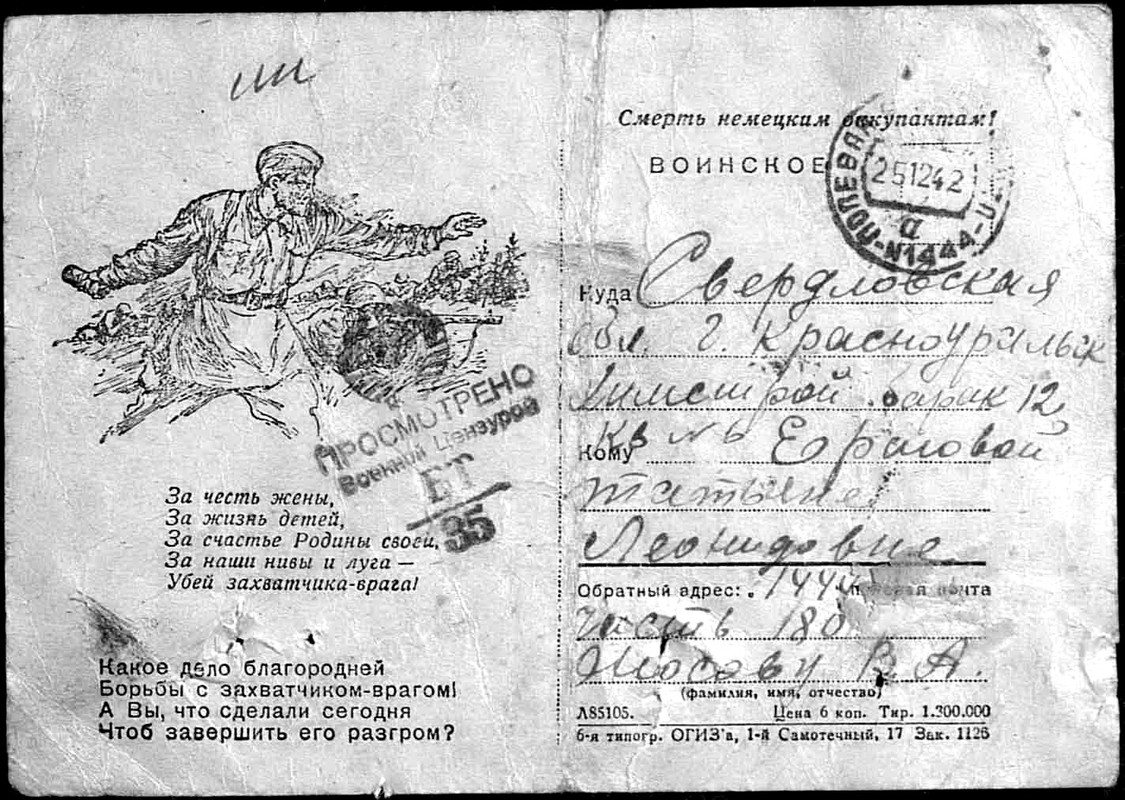 За честь жены,
За жизнь детей,
За счастье Родины своей,
За наши нивы и луга —
Убей захватчика-врага!
Какое дело благородней
Борьбы с захватчиком-врагом!
А Вы, что сделали сегодня
Чтоб завершить его разгром?
ПРОСМОТРЕНО
Военной Цензурой
БТ
35
Смерть немецким оккупантам!
ВОИНСКОЕ
ПОЛЕВАЯ
251242
а
N1444
Куда Свердловская
обл. г. Красноуральск
Химстрой барак 12
кв № 6
Кому
Татьяне
Леонидовне
Обратный адрес: 1444 полевая почта
часть 180
Носову В. А.
(фамилия, имя, отчество)
Л85105. Цена 6 коп. Тир. 1.300.000
6-я типогр. ОГИЗ'а, 1-й Самотечный, 17 Зак. 1126